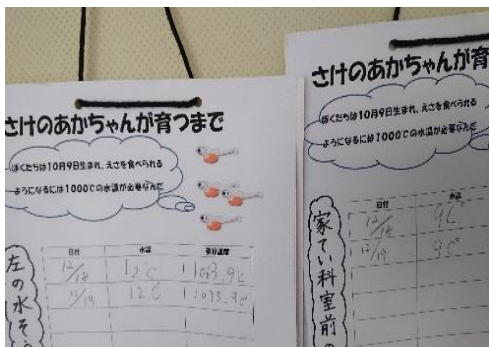 さけのあかちゃんが育つまで
ぼくたちは10月9日生まれ、えさを食べられる
ようになるには1000℃の水温が必要なんだ
左の水そう
日付 水温 積算温度
12/18 12℃
12/19 12℃ 1095.9℃
さけのあかちゃんが育
ぼくたちは10月9日生まれ、えさを食べられる
ようになるには1000℃の水温が必要なんだ
家てい科室前の
日付 水温
12/18 9℃
12/19